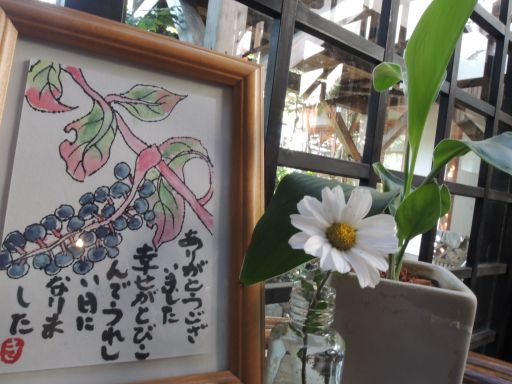 ありがとうござ
いました
幸せがとびこ
んでうれし
い日に
なりま
した